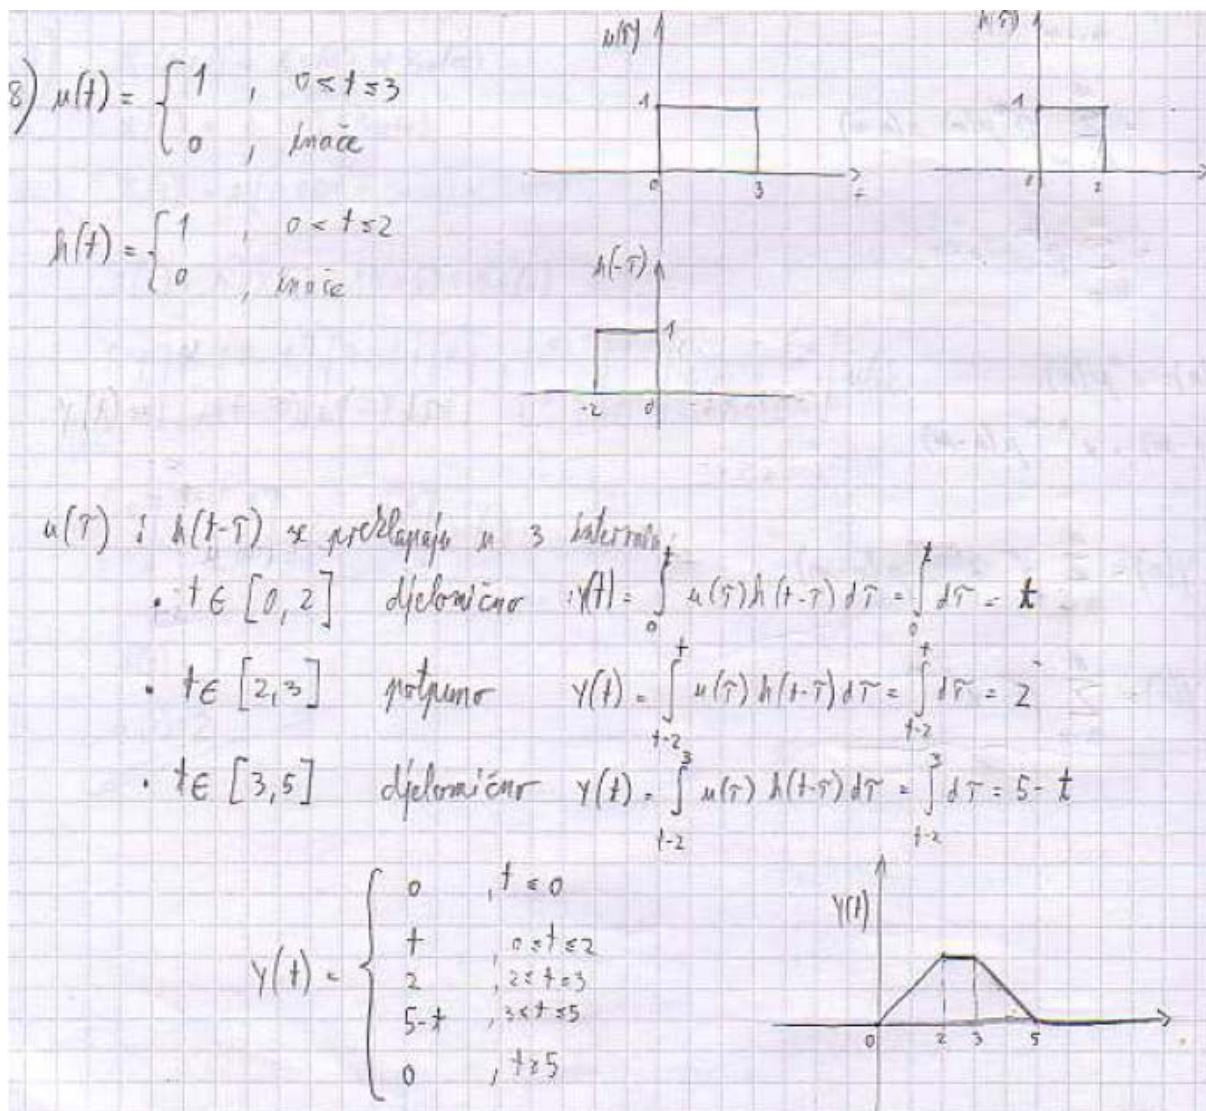 8) u(t) = { 1 , 0 ≤ t ≤ 3
0 , inače
u(τ)
1
0 3
h(τ)
1
0 2
h(t) = { 1 , 0 < t ≤ 2
0 , inače
h(-τ)
1
-2 0
u(τ) i h(t-τ) se preklapaju u 3 intervala
• t ∈ [0, 2] djelomično y(t) = ∫₀ᵗ u(τ) h(t-τ) dτ = ∫₀ᵗ dτ = t
• t ∈ [2, 3] potpuno y(t) = ∫ₜ₋₂ᵗ u(τ) h(t-τ) dτ = ∫ₜ₋₂ᵗ dτ = 2
• t ∈ [3, 5] djelomično y(t) = ∫ₜ₋₂³ u(τ) h(t-τ) dτ = ∫ₜ₋₂³ dτ = 5 - t
y(t) = { 0 , t ≤ 0
t , 0 ≤ t ≤ 2
2 , 2 ≤ t ≤ 3
5-t , 3 < t ≤ 5
0 , t ≥ 5
y(t)
0 2 3 5